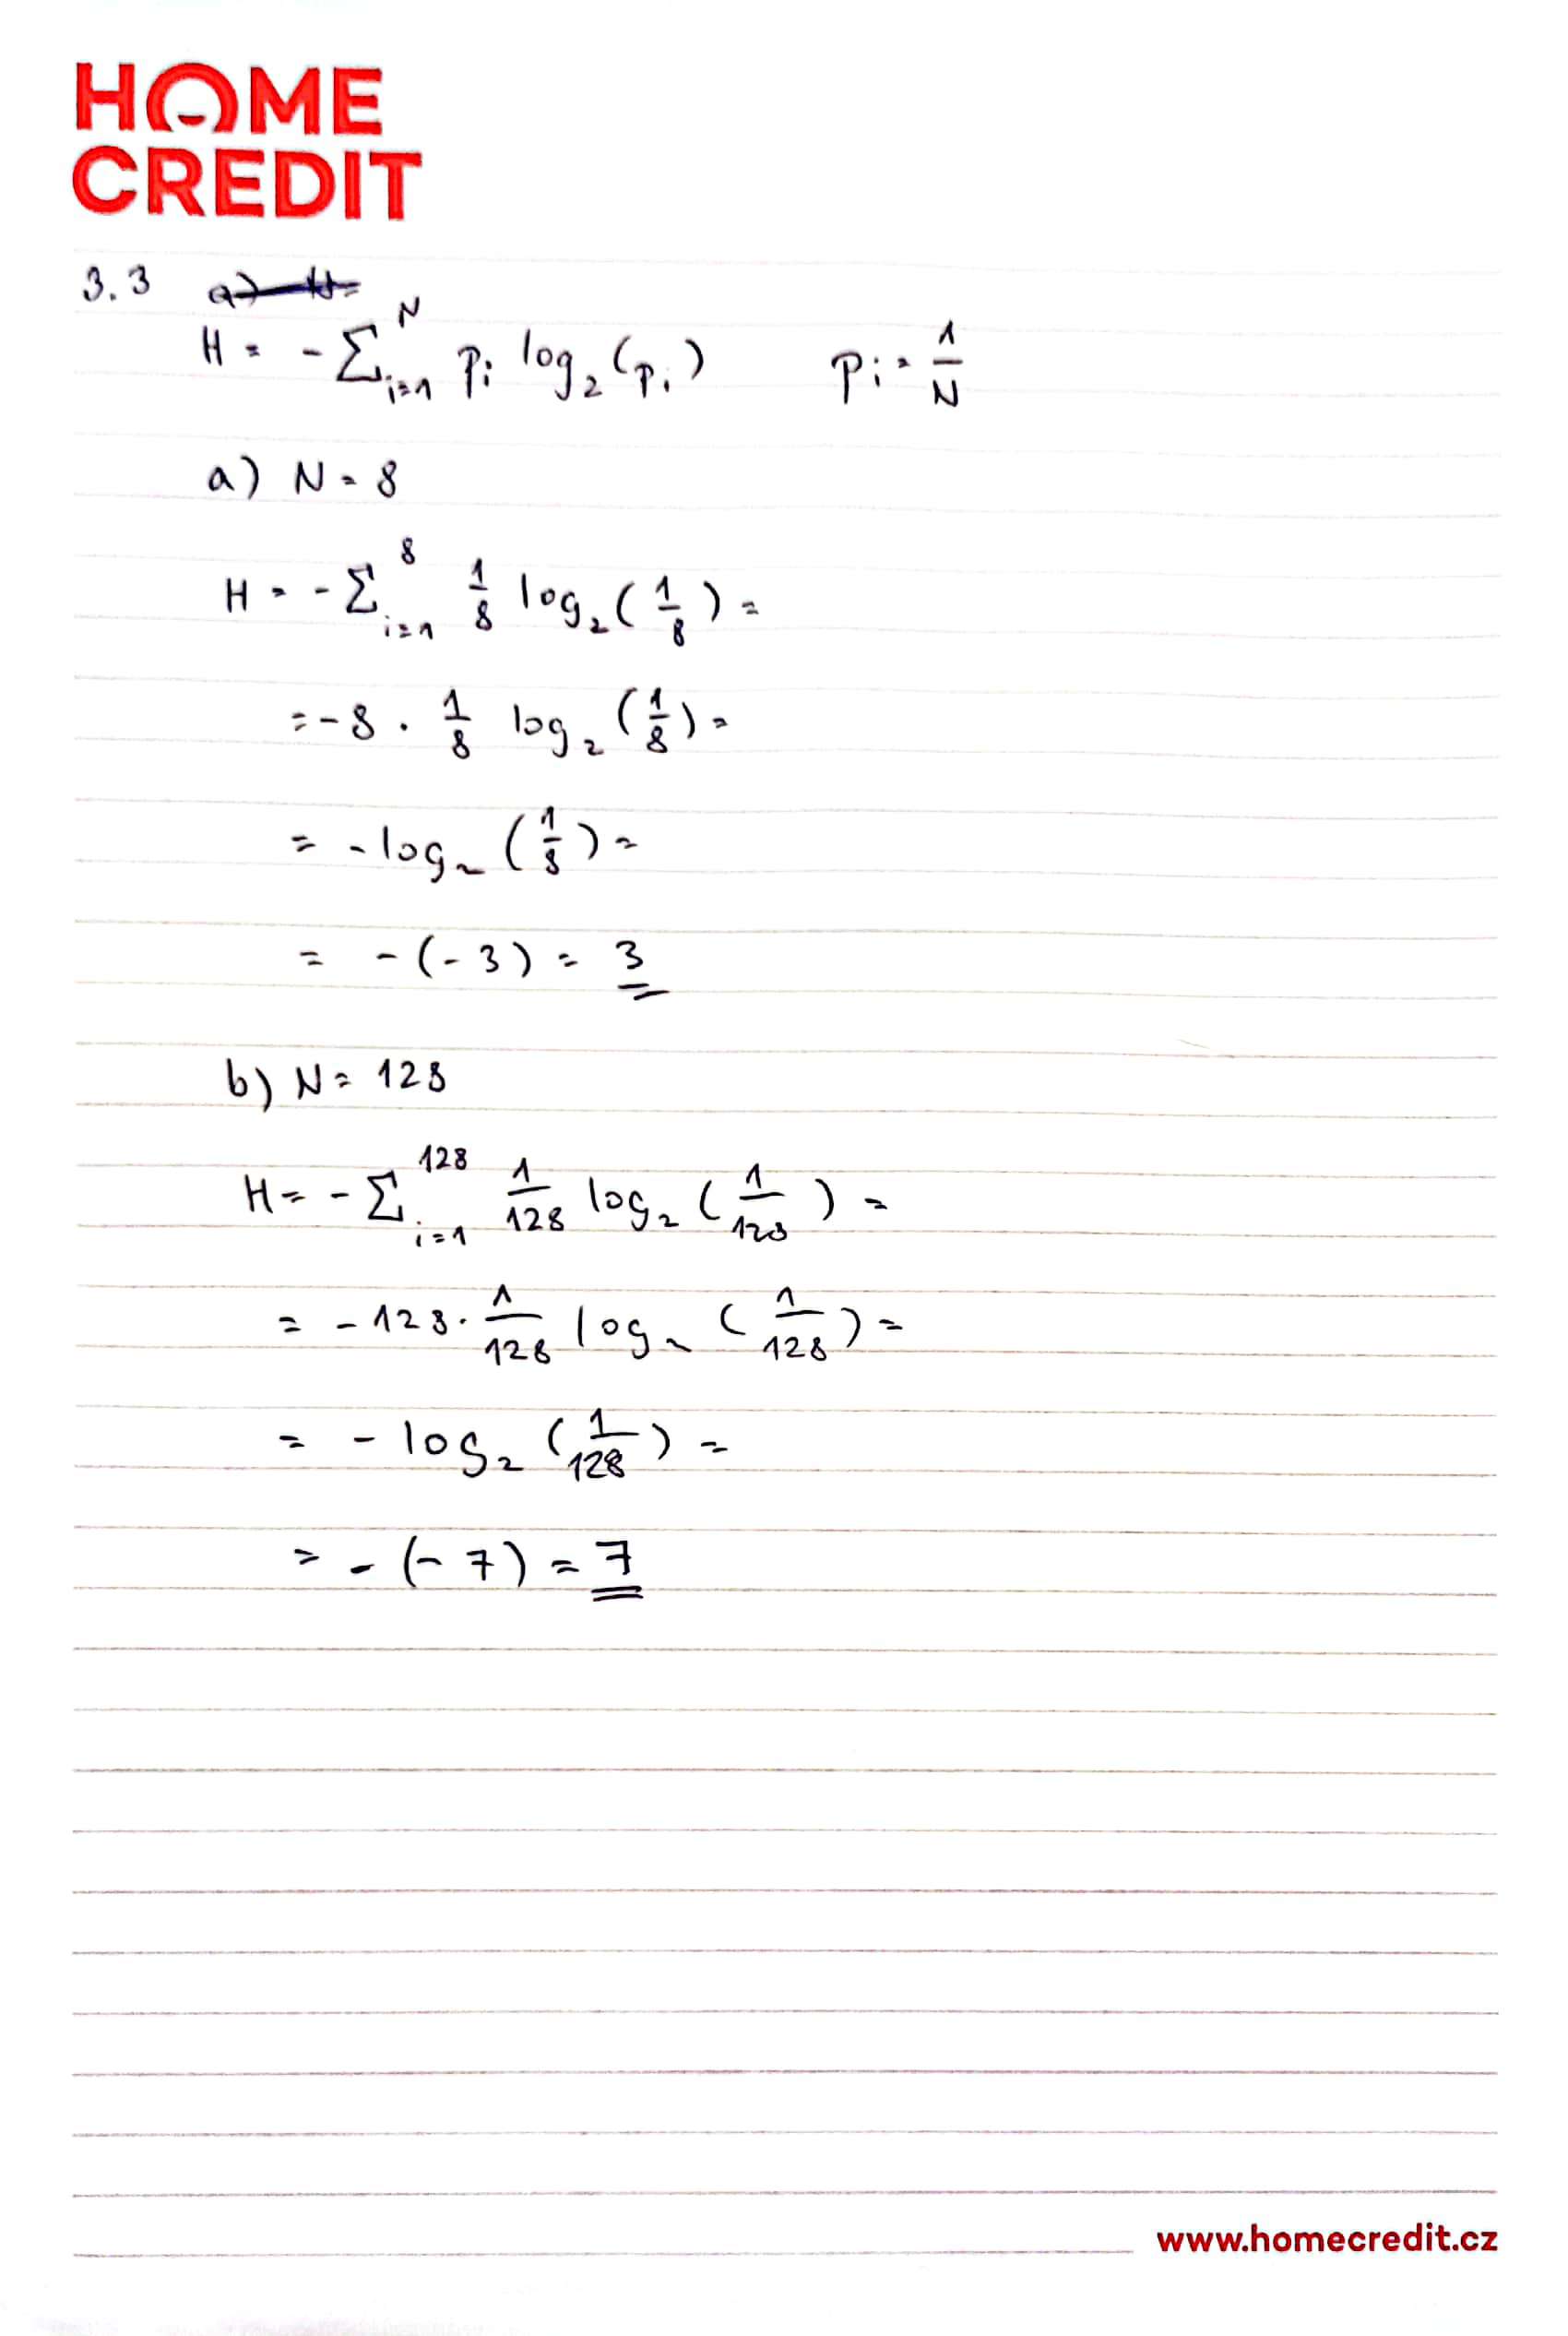 HOME
CREDIT
3.3 a) H=
H = - ∑_{i=1}^{N} p_i log_2 (p_i) p_i = 1/N
a) N = 8
H = - ∑_{i=1}^{8} 1/8 log_2 (1/8) =
= - 8 · 1/8 log_2 (1/8) =
= - log_2 (1/8) =
= - (-3) = 3
b) N = 128
H = - ∑_{i=1}^{128} 1/128 log_2 (1/128) =
= - 128 · 1/128 log_2 (1/128) =
= - log_2 (1/128) =
= - (-7) = 7
www.homecredit.cz